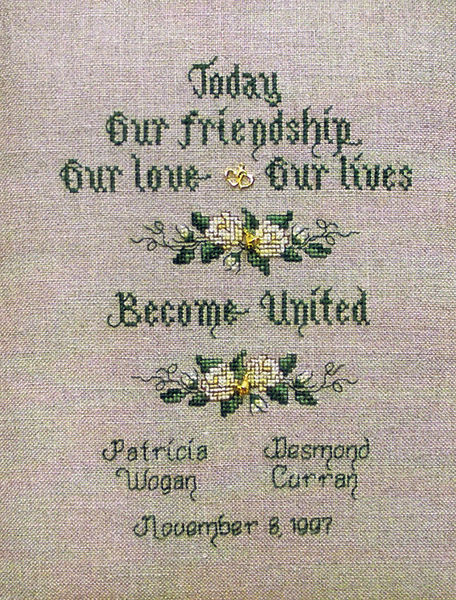 Today
Our friendship
Our love Our lives
Become United
Patricia Desmond
Wogan Curran
November 8, 1997